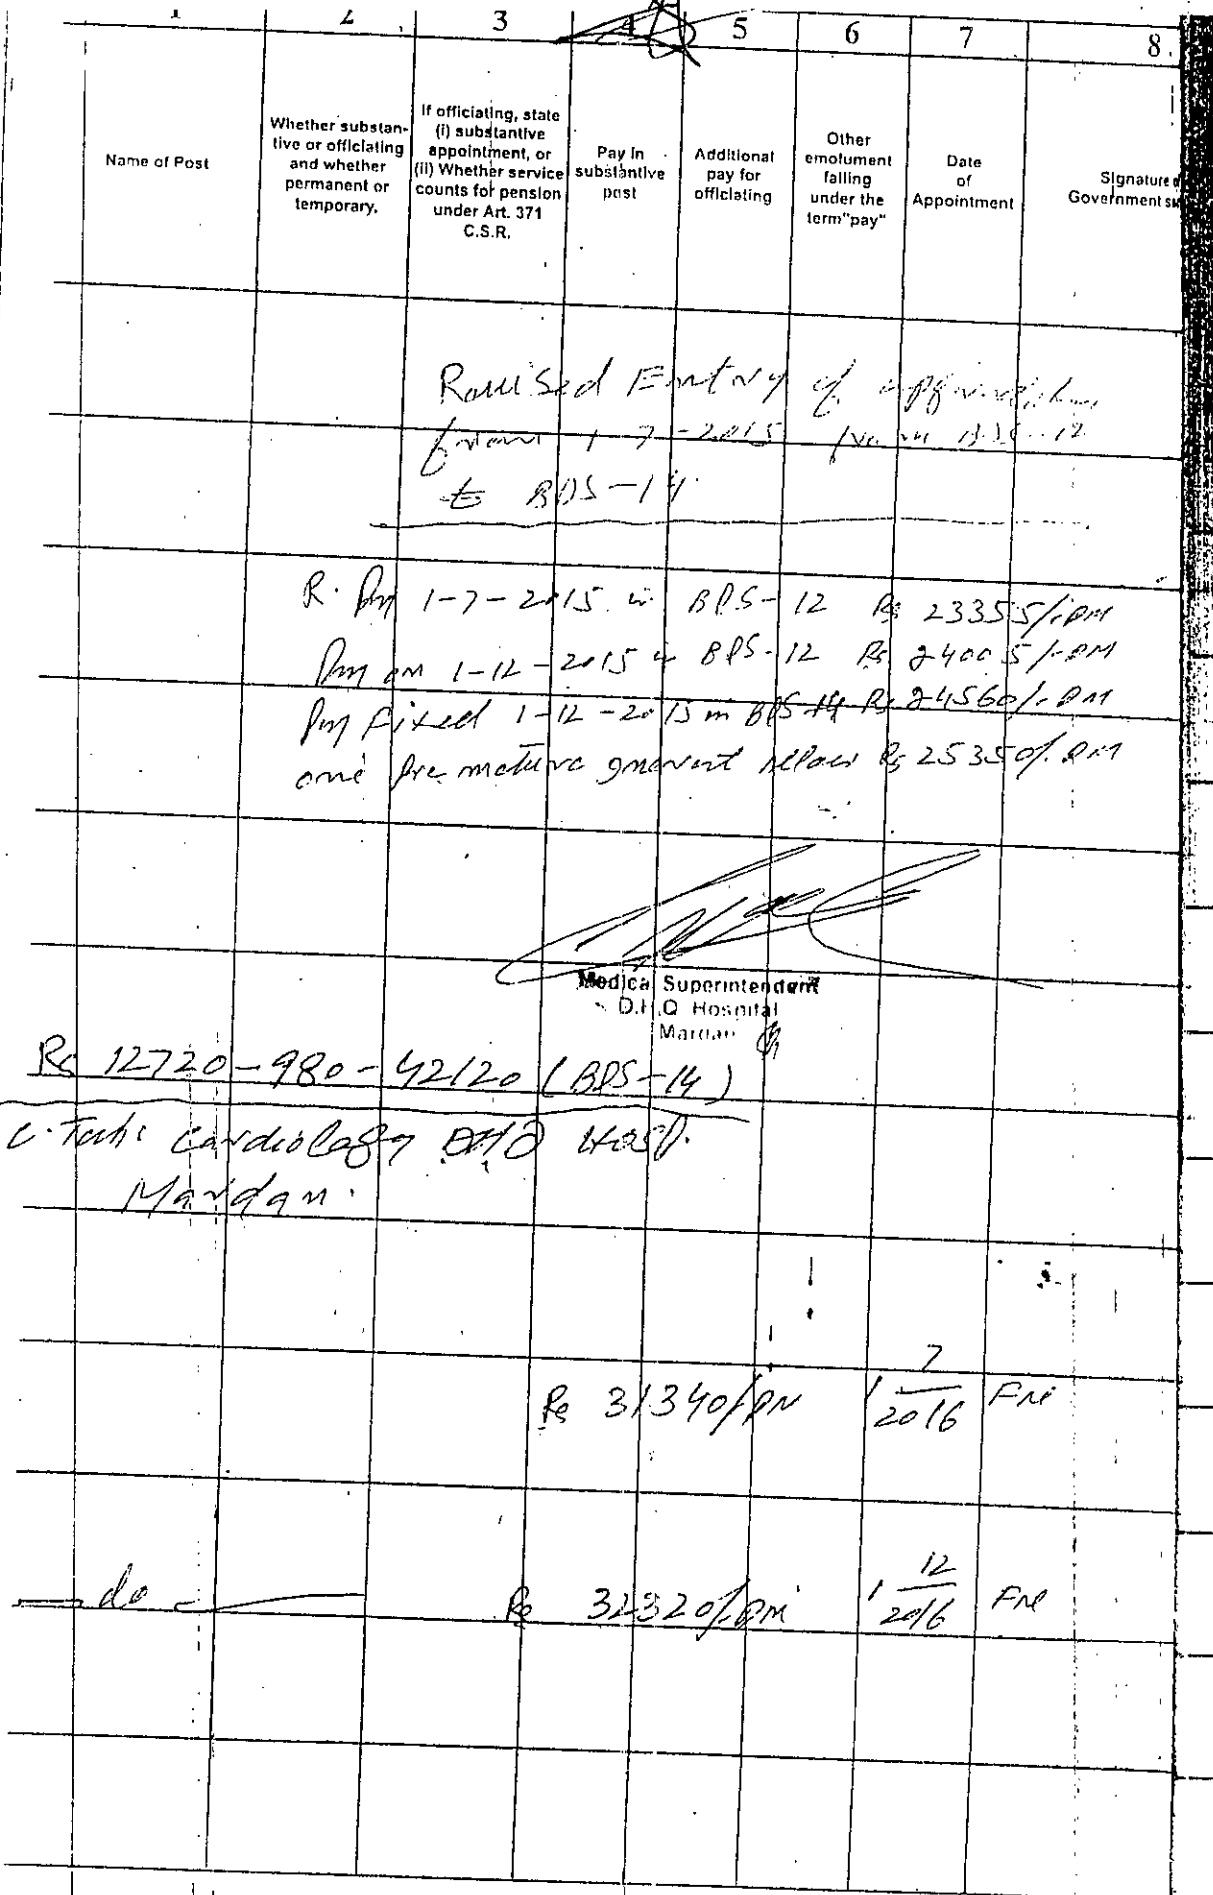 1 2 3 4 5 6 7 8.
Name of Post
Whether substan-
tive or officiating
and whether
permanent or
temporary.
If officiating, state
(i) substantive
appointment, or
(ii) Whether service
counts for pension
under Art. 371
C.S.R.
Pay in
substantive
post
Additional
pay for
officiating
Other
emolument
falling
under the
term"pay"
Date
of
Appointment
Signature
Government
Rauised Entry of
from 1-7-2015 from 12
to BPS-14
R. Pay 1-7-2015 in BPS-12 Rs 23355/-PM
Pay on 1-12-2015 in BPS-12 Rs 24005/-PM
Pay fixed 1-12-2015 in BPS-14 Rs 24560/-PM
one pre mature Rs 25350/-PM
Medical Superintendent
D.H.Q Hospital
Mardan
Rs 12720-980-42120 (BPS-14)
C. Tech: Cardiology DHQ Hosp.
Mardan.
Rs 31340/-PM 1 7/2016
do Rs 32320/-PM 1 12/2016